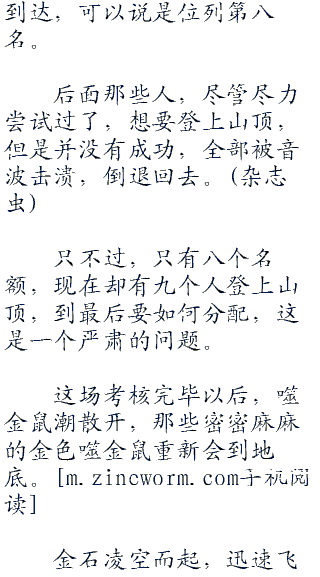 到达，可以说是位列第八
名。
后面那些人，尽管尽力
尝试过了，想要登上山顶，
但是并没有成功，全部被音
波击溃，倒退回去。(杂志
虫)
只不过，只有八个名
额，现在却有九个人登上山
顶，到最后要如何分配，这
是一个严肃的问题。
这场考核完毕以后，噬
金鼠潮散开，那些密密麻麻
的金色噬金鼠重新会到地
底。[m.zincworm.com手机阅
读]
金石凌空而起，迅速飞